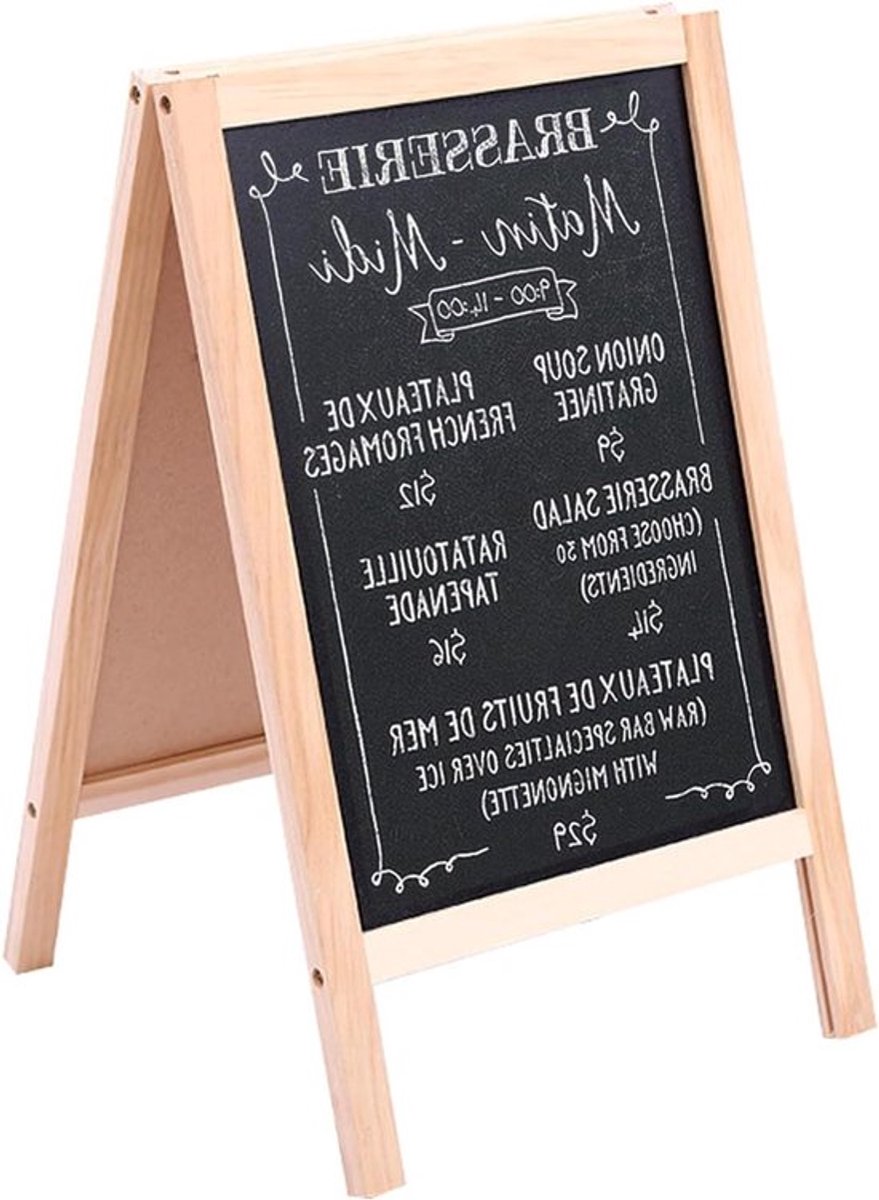 BRASSERIE
Matin - Midi
9:00 - 14:00
ONION SOUP
GRATINEE
$9
PLATEAUX DE
FRENCH FROMAGES
$12
BRASSERIE SALAD
(CHOOSE FROM 20
INGREDIENTS)
$14
RATATOUILLE
TAPENADE
$16
PLATEAUX DE FRUITS DE MER
(RAW BAR SPECIALTIES OVER ICE
WITH MIGNONETTE)
$29